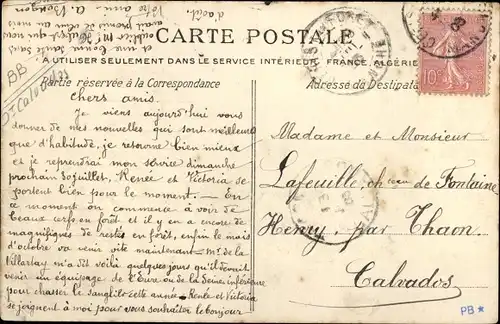 CARTE POSTALE
A UTILISER SEULEMENT DANS LE SERVICE INTÉRIEUR FRANCE, ALGÉRIE
Partie réservée à la Correspondance
Adresse du Destinata
Chers amis.
Je viens aujourd'hui vous
donner de mes nouvelles qui sont meilleures
que d'habitude, je retourne bien mieux
et je reprendrai mon service dimanche
prochain 30 juillet, Renée et Victoria se
portent bien pour le moment. — En
ce moment on commence à voir de
beaux cerfs en forêt et il y en a encore de
magnifiques de restés en forêt, enfin le mois
d'octobre va venir vite maintenant Mr de la
Villartay m'a dit voilà quelques jours qu'il devait
venir un équipage de l'Eure ou de la Seine inférieure
pour chasser le sanglier cette année. Renée et Victoria
se joignent à moi pour vous souhaiter le bonjour
et une bonne santé dans
Madame et Monsieur
Lafeuille, ch de Fontaine
Henry, par Thaon
Calvados
10
BB
Calvados
PB